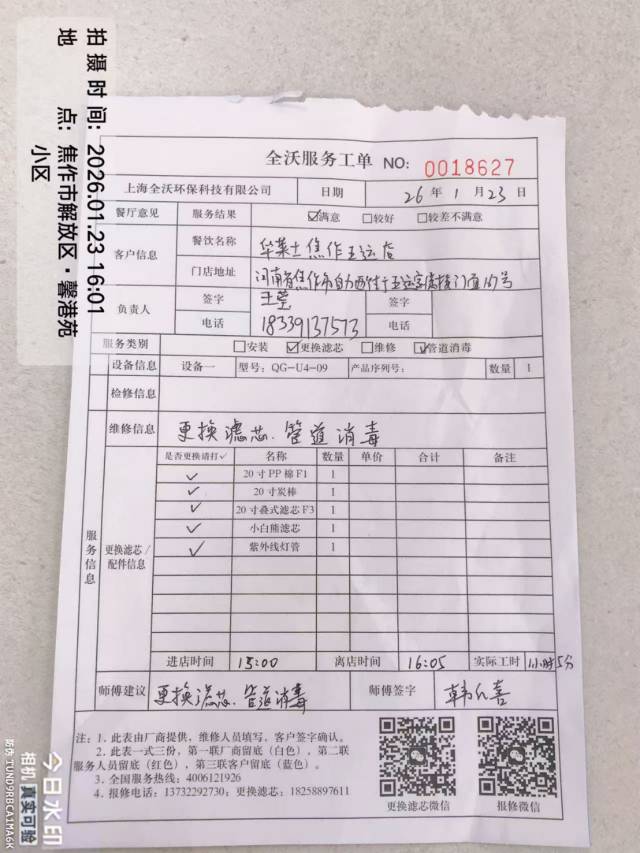 拍摄时间: 2026.01.23 16:01
地 点: 焦作市解放区·馨港苑
小区
全沃服务工单 NO: 0018627
上海全沃环保科技有限公司 日期 26 年 1 月 23 日
餐厅意见 服务结果 ☑满意 □较好 □较差不满意
客户信息 餐饮名称 华莱士焦作王远店
门店地址 河南省焦作市自力西村十 门面157号
负责人 签字 王莹 签字
电话 18339137573 电话
服务类别 □安装 ☑更换滤芯 □维修 ☑管道消毒
服务信息
设备信息 设备一 型号: QG-U4-09 产品序列号: 数量 1
检修信息
维修信息 更换滤芯.管道消毒
更换滤芯/配件信息
是否更换请打✓ 名称 数量 单价 合计 备注
✓ 20寸PP棉F1 1
✓ 20寸炭棒 1
✓ 20寸叠式滤芯F3 1
✓ 小白熊滤芯 1
✓ 紫外线灯管 1
进店时间 15:00 离店时间 16:05 实际工时 1小时5分
师傅建议 更换滤芯.管道消毒 师傅签字
注: 1. 此表由厂商提供, 维修人员填写、客户签字确认。
2. 此表一式三份, 第一联厂商留底（白色）, 第二联
服务人员留底（红色）, 第三联客户留底（蓝色）。
3. 全国服务热线: 4006121926
4. 报修电话: 13732292730; 更换滤芯: 18258897611
更换滤芯微信 报修微信
今日水印
相机 真实可验
防伪 TUND9RBCA1MA6K